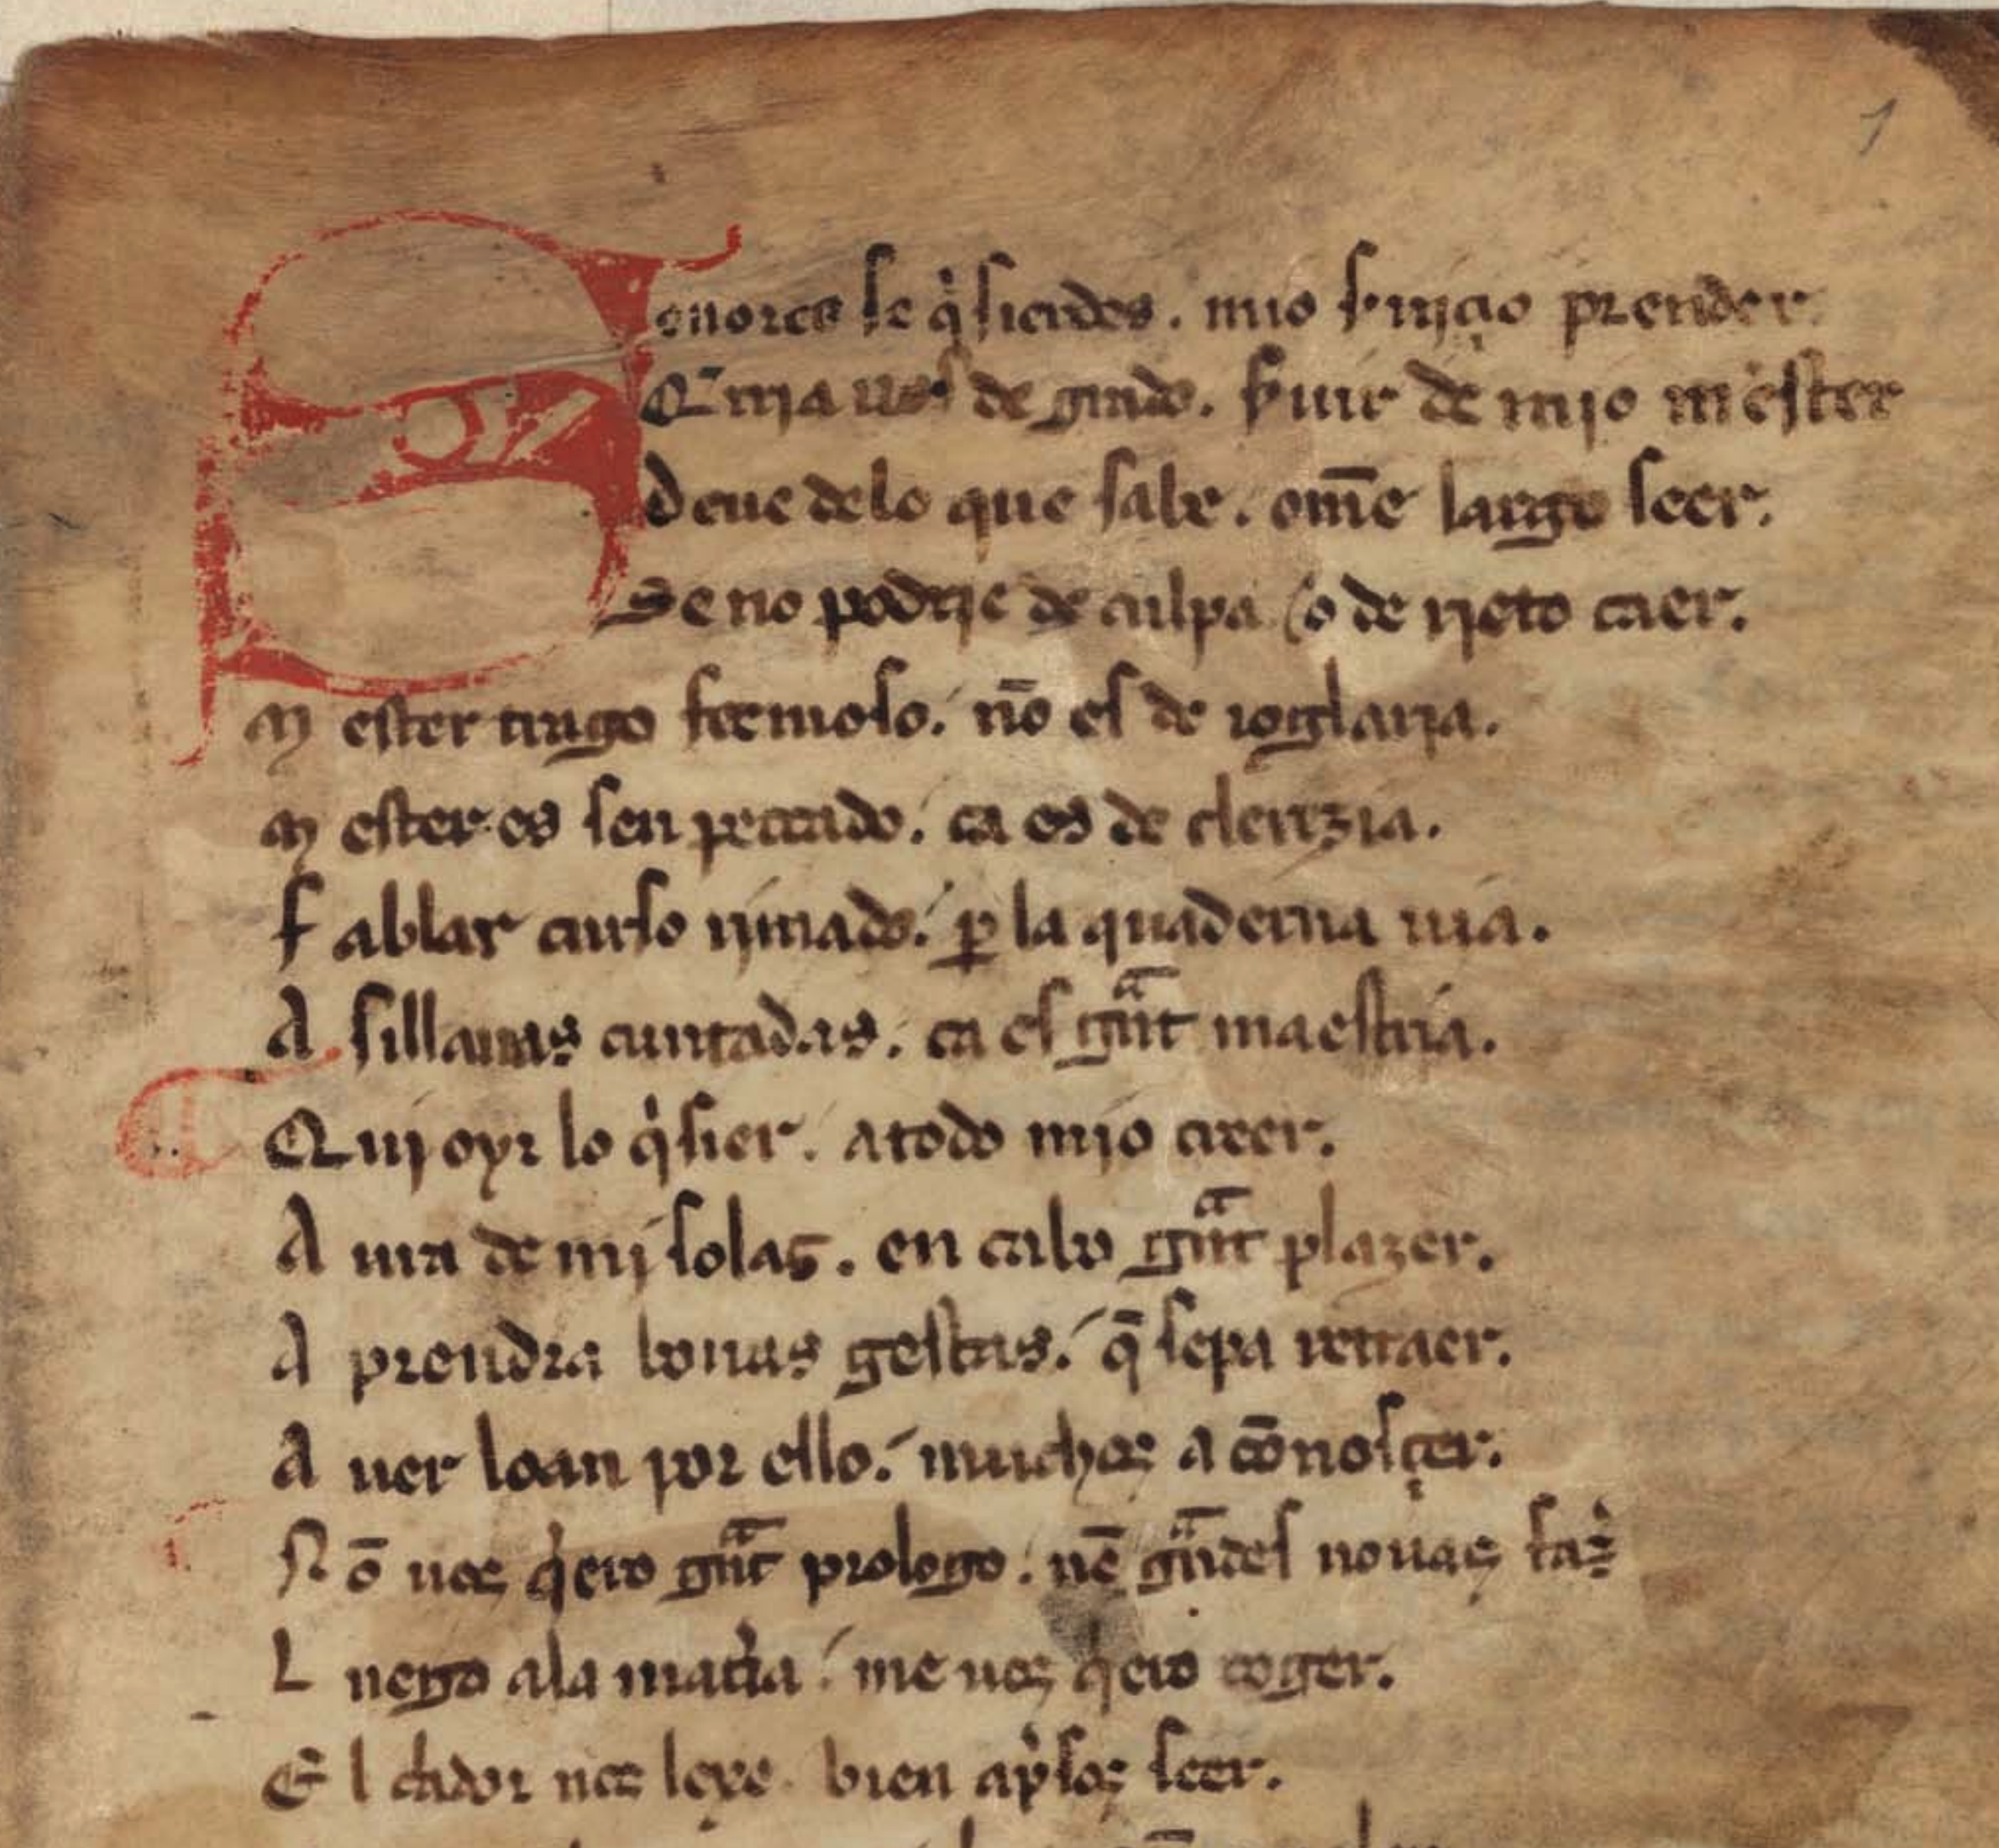 1
Senores se q̇ sierdes. mio seruiçio prender
Q̅ rria uos de grado. seruir de mio mester
Deue de lo que sabe. om̅e largo seer.
Se no podrie de culpa o de rieto caer.
M ester trago fermoso. nō es de ioglaria.
M ester es sen peccado. ca es de clerizia.
F ablar curso rimado. ꝑ la quaderna uia.
A sillauas cuntadas. ca es gᵃnt maestria.
Q ui oyr lo q̇sier. a todo mio creer.
A ura de mi solaç. en cabo gᵃnt plazer.
A prendra bonas gestas. q̄ sepa retraer.
A uer loan por ello. muchos a cōnosçer.
N ō uos q̇ero gᵃnt prologo. nē gᵃndes nouas faz̉
L uego ala mat̉ia me uos q̇ero coger.
E l c̉ador nos lexe bien ap̉sos seer.